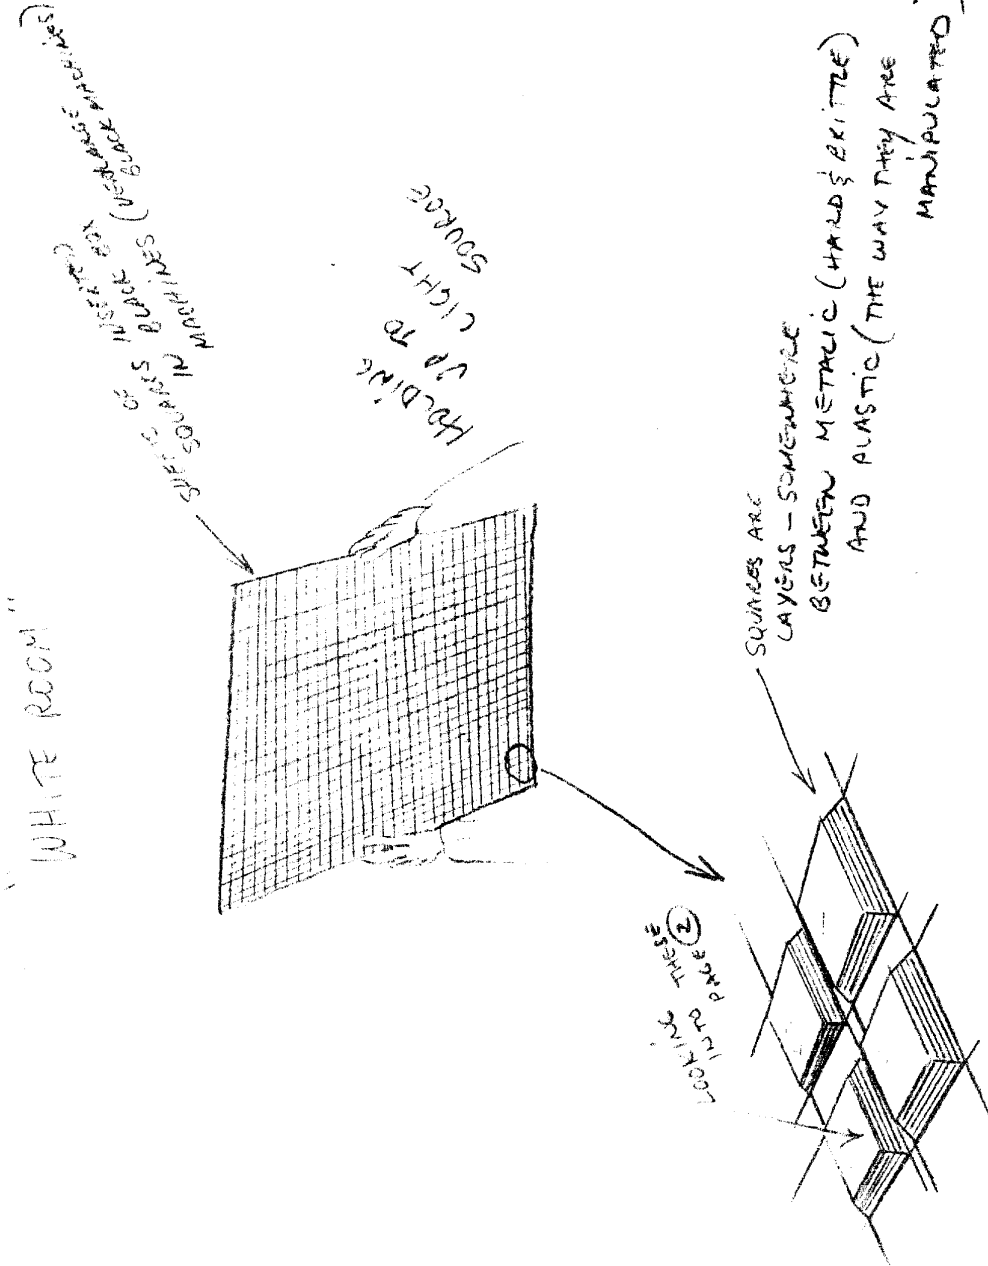 "WHITE ROOM"
SHEETS OF INSERTED
SQUARES BLACK BOX
IN BLACK
MACHINES (VERY LARGE
BLACK MACHINES)
HOLDING
UP TO
LIGHT
SOURCE
SQUARES ARE
LAYERS - SOMEWHERE
BETWEEN METALIC (HARD & BRITTLE)
AND PLASTIC (THE WAY THEY ARE
MANIPULATED)
LOOKING THESE
INTO PAGE 2